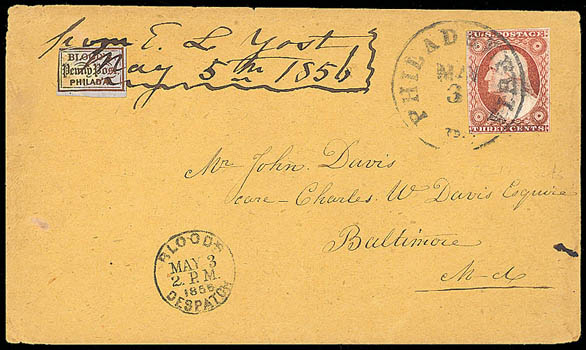 from E. L. Yost
May 5th 1856
BLOOD'S
Penny Post
PHILADA
PHILADA
MAY
3
U.S. POSTAGE
THREE CENTS
Mr John Davis
care - Charles W Davis Esquire
Baltimore
Md
BLOODS
MAY 3
2 P.M.
1856
DESPATCH